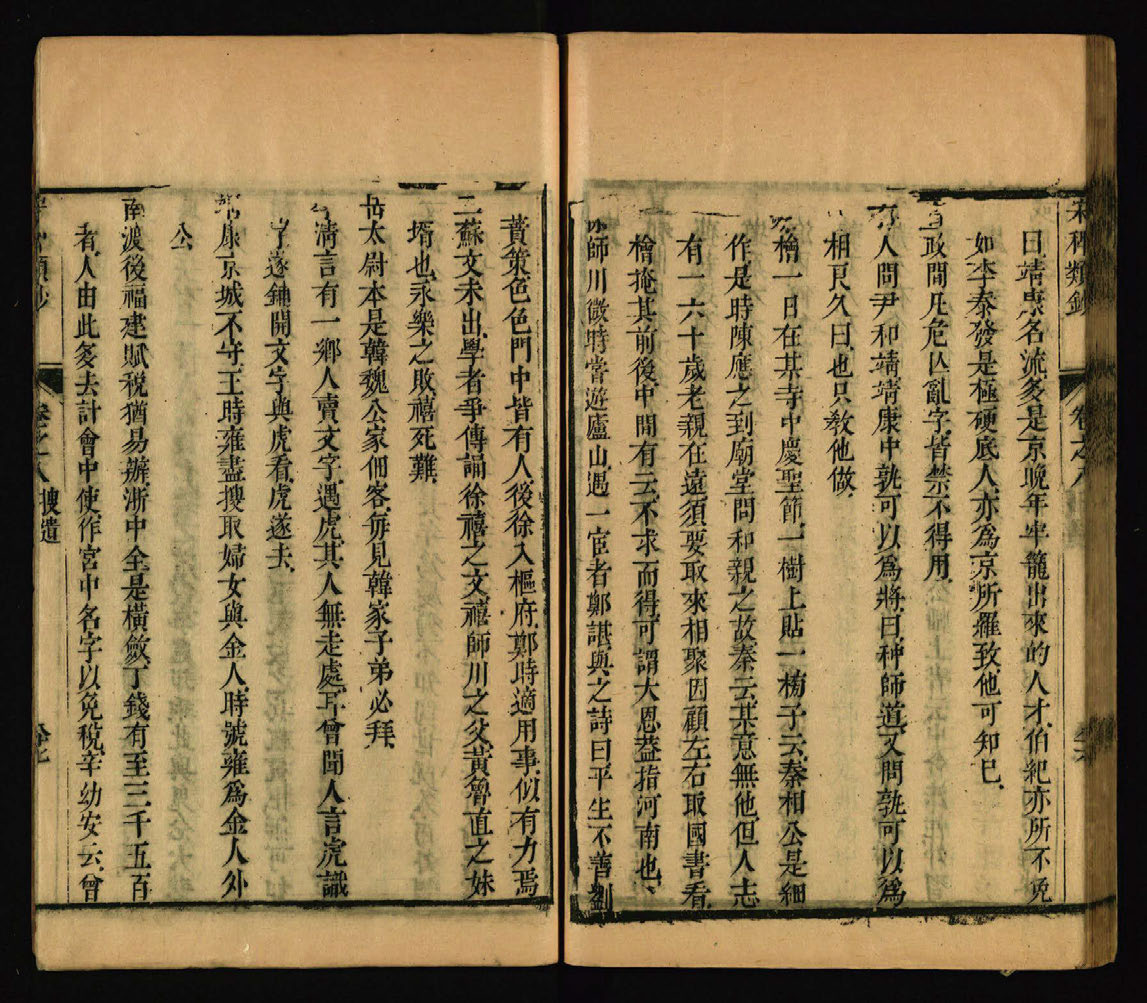 宋稗類鈔 卷之八
曰靖康名流多是京晚年牢籠出來的人才伯紀亦所不免
如李泰發是極硬底人亦為京所羅致他可知巳
政間凡危亂字皆禁不得用
人問尹和靖靖康中孰可以為將曰种師道又問孰可以為
相良久曰也只教他做
檜一日在某寺中慶聖節一樹上貼一榜子云秦相公是細
作是時陳應之到廟堂問和親之故秦云某意無他但人主
有一六十歲老親在遠須要取來相聚因顧左右取國書看
檜掩其前後中間有云不求而得可謂大恩葢指河南也
師川微時嘗遊廬山遇一宦者鄭諶與之詩曰平生不善劉
蕡策色色門中皆有人後徐入樞府鄭時適用事似有力焉
二蘇文未出學者爭傳誦徐禧之文禧師川之父黃魯直之妹
壻也永樂之敗禧死難
太尉本是韓魏公家佃客每見韓家子弟必拜
清言有一鄉人賣文字遇虎其人無走處耳曾聞人言虎識
字遂鋪開文字與虎看虎遂去
靖康京城不守王時雍盡搜取婦女與金人時號雍為金人外
公
南渡後福建賦稅猶易辦浙中全是橫斂丁錢有至三千五百
者人由此多去計會中使作宮中名字以免稅辛幼安云曾
類鈔 卷之八 搜遺